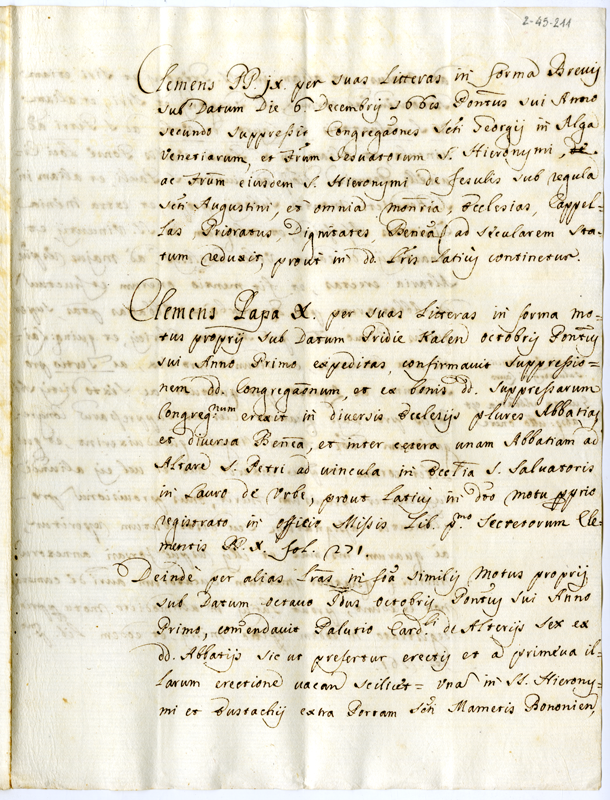 2-45-211
Clemens PP. jx. per suas Litteras in forma Brevij
sub Datum Die 6 Decembrij 1668 Pontus sui Anno
secundo suppressit Congregaones Scti Georgij in Alga
Venetiarum, et Frum Jesuatorum S. Hieronymi,
ac Frum eiusdem S. Hieronymi de Fesulis sub regula
Scti Augustini, et omnia monria, Ecclesias, Cappel=
las, Prioratus, Dignitates, Benea ad secularem Sta=
tum reduxit, prout in dd. Lris latius continetur.
Clemens Papa X. per suas Litteras in forma mo=
tus proprij sub Datum Pridie Kalen octobrij Pontus
sui Anno Primo expeditas, confirmavit suppressio=
nem dd. Congregaonum, et ex bonis dd. Suppressarum
Congregnum erexit in diversis Ecclesijs plures Abbatias
et diversa Benea, et inter cetera unam Abbatiam ad
Altare S. Petri ad vincula in Ecclia S. Salvatoris
in Lauro de Urbe, prout latius in dto motu pprio
registrato in officio Missis Lib. pmo Secretorum Cle=
mentis PP. X. fol. 271.
Deinde per alias Lras in fra similis Motus proprij
sub Datum octavo Idus octobrij Pontus sui Anno
Primo, comendavit Palutio Cardli de Alterijs sex ex
dd. Abbatijs sic ut prefertur erectis et a primeva il=
larum erectione vacan scilicet= Una in SS. Hierony=
mi et Eustachij extra Portam Scti Mametis Bononien,